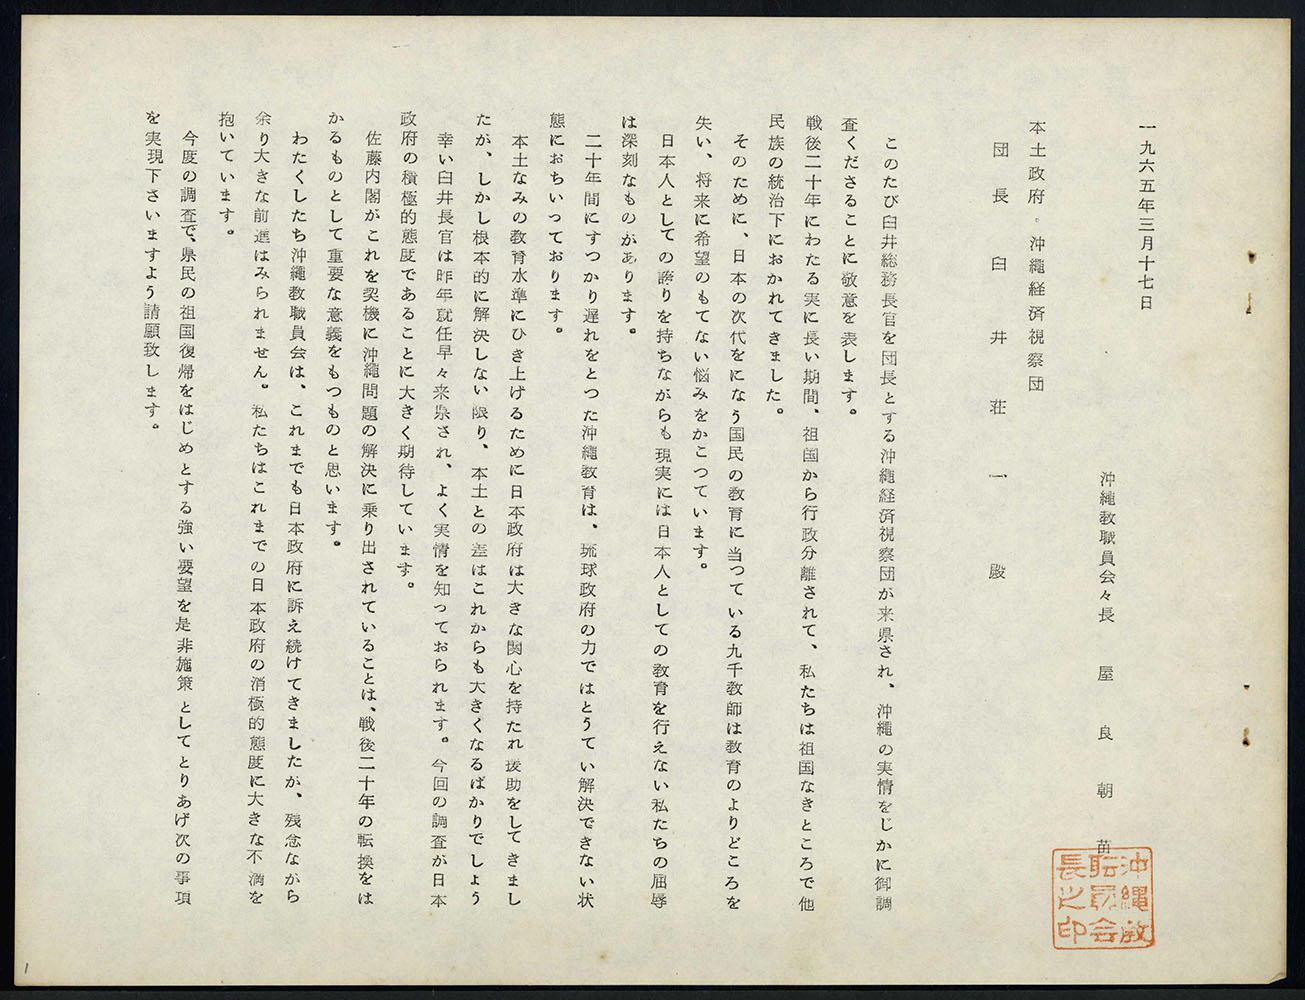 一九六五年三月十七日
沖縄教職員会々長　屋良朝苗
沖縄教職員会長之印
本土政府 沖縄経済視察団
団長　臼井荘一　殿
このたび臼井総務長官を団長とする沖縄経済視察団が来県され、沖縄の実情をじかに御調
査くださることに敬意を表します。
戦後二十年にわたる実に長い期間、祖国から行政分離されて、私たちは祖国なきところで他
民族の統治下におかれてきました。
そのために、日本の次代をになう国民の教育に当つている九千教師は教育のよりどころを
失い、将来に希望のもてない悩みをかこつています。
日本人としての誇りを持ちながらも現実には日本人としての教育を行えない私たちの屈辱
は深刻なものがあります。
二十年間にすつかり遅れをとつた沖縄教育は、琉球政府の力ではとうてい解決できない状
態におちいつております。
本土なみの教育水準にひき上げるために日本政府は大きな関心を持たれ援助をしてきまし
たが、しかし根本的に解決しない限り、本土との差はこれからも大きくなるばかりでしよう
幸い臼井長官は昨年就任早々来県され、よく実情を知っておられます。今回の調査が日本
政府の積極的態度であることに大きく期待しています。
佐藤内閣がこれを契機に沖縄問題の解決に乗り出されていることは、戦後二十年の転換をは
かるものとして重要な意義をもつものと思います。
わたくしたち沖縄教職員会は、これまでも日本政府に訴え続けてきましたが、残念ながら
余り大きな前進はみられません。私たちはこれまでの日本政府の消極的態度に大きな不満を
抱いています。
今度の調査で、県民の祖国復帰をはじめとする強い要望を是非施策としてとりあげ次の事項
を実現下さいますよう請願致します。
1